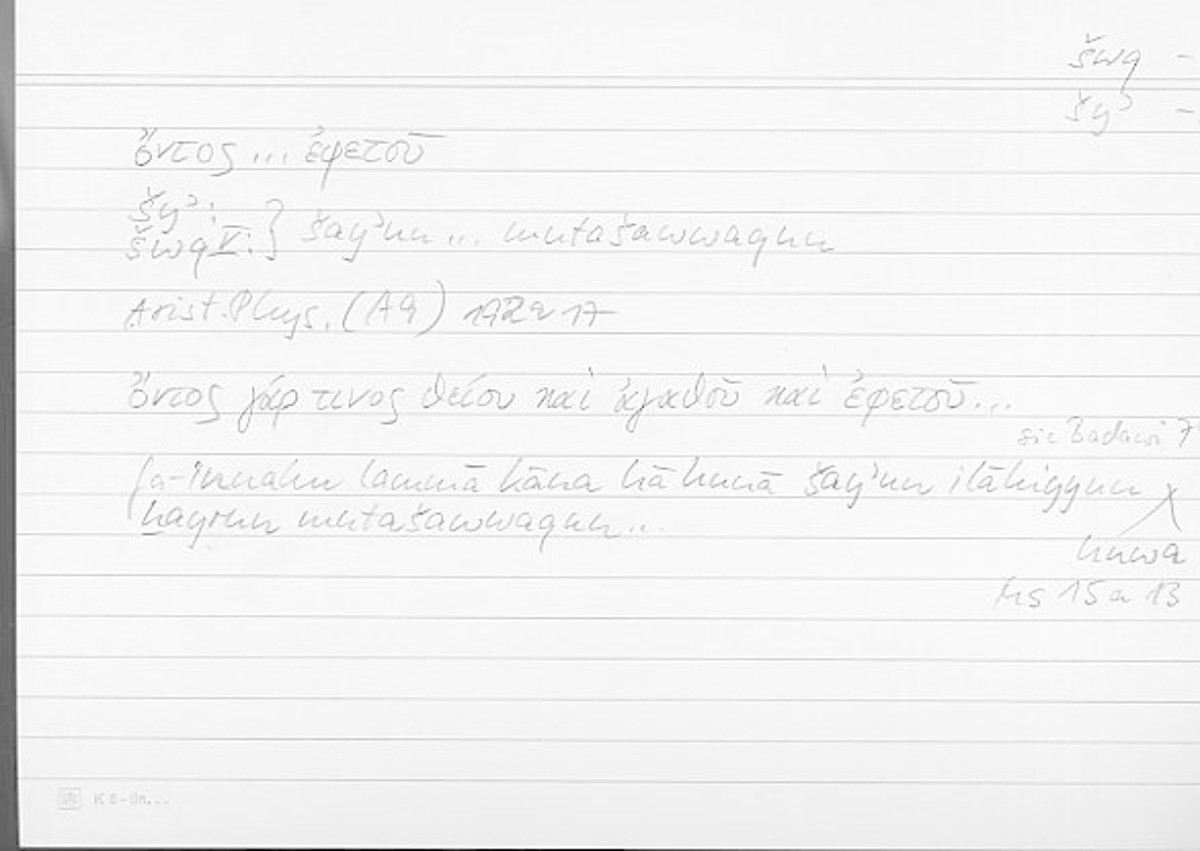 šwq -
šyʾ -
ὄντος ... ἐφετοῦ
šyʾ:
šwq V: } šayʾun ... mutašawwaqun
Arist. Phys. (A9) 192a17
ὄντος γάρ τινος θείου καὶ ἀγαθοῦ καὶ ἐφετοῦ...
sic Badawi 7
fa-innahu lammā kāna hāhunā šayʾun ilāhiyyun
ḫayrun mutašawwaqun...
huwa
Hs 15a 13